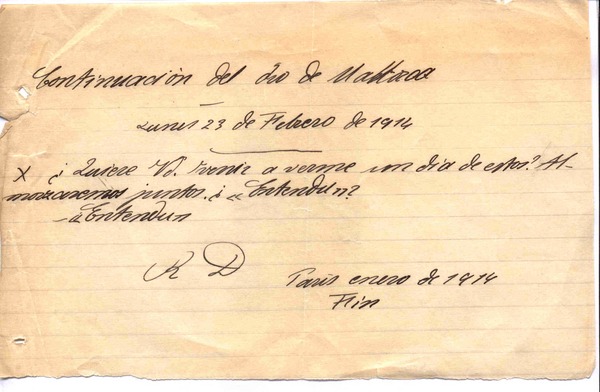 Continuación del oro de Mallorca
Lunes 23 de Febrero de 1914
X ¿Quiere Vd. venir a verme un dia de estos? Al-
morzaremos juntos. ¿ "Entendu"?
-"Entendu"
R D
Paris enero de 1914
Fin